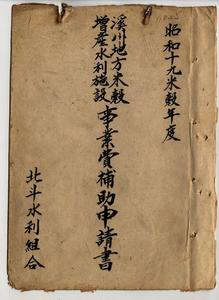 昭和十九米穀年度
溪川地方米穀
增産水利施設
事業費補助申請書
北斗水利組合